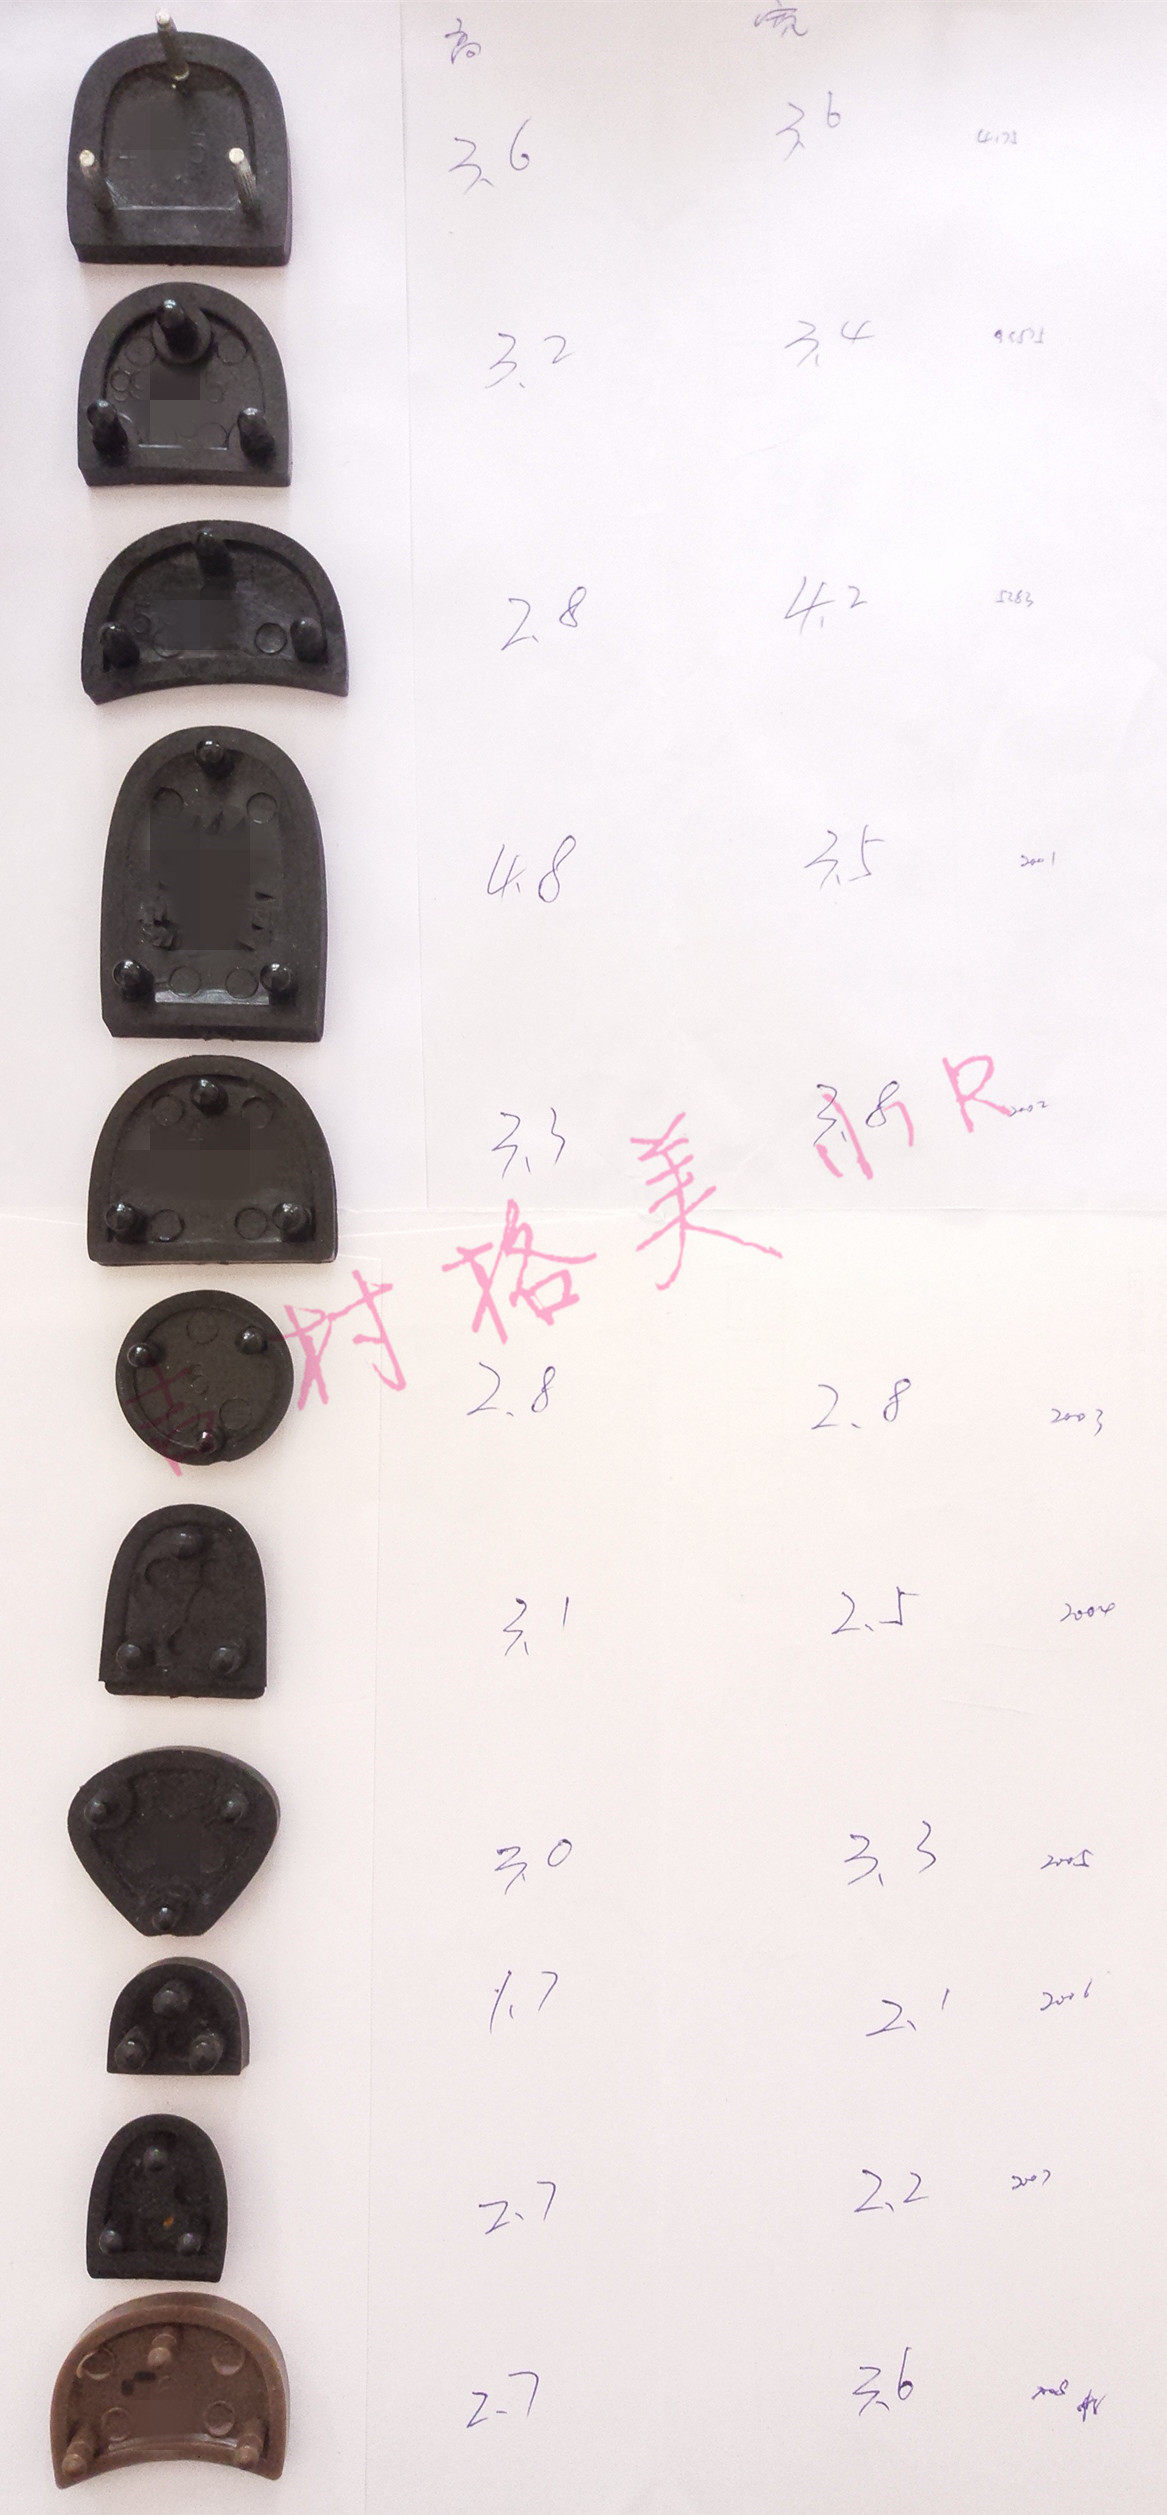 高 宽
3.6 3.6 4175
3.2 3.4
2.8 4.2 5283
4.8 3.5 2001
3.3 3.8 2002
村格美
2.8 2.8 2003
3.1 2.5 2004
3.0 3.3 2005
1.7 2.1 2006
2.7 2.2 2007
2.7 3.6 2008